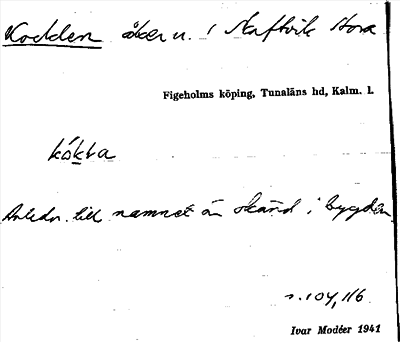 Kodden åker u. i Skaftvik Stora
Figeholms köping, Tunaläns hd, Kalm. l.
kókka
Anledn. till namnet är okänd i bygden
s. 104, 116
Ivar Modéer 1941